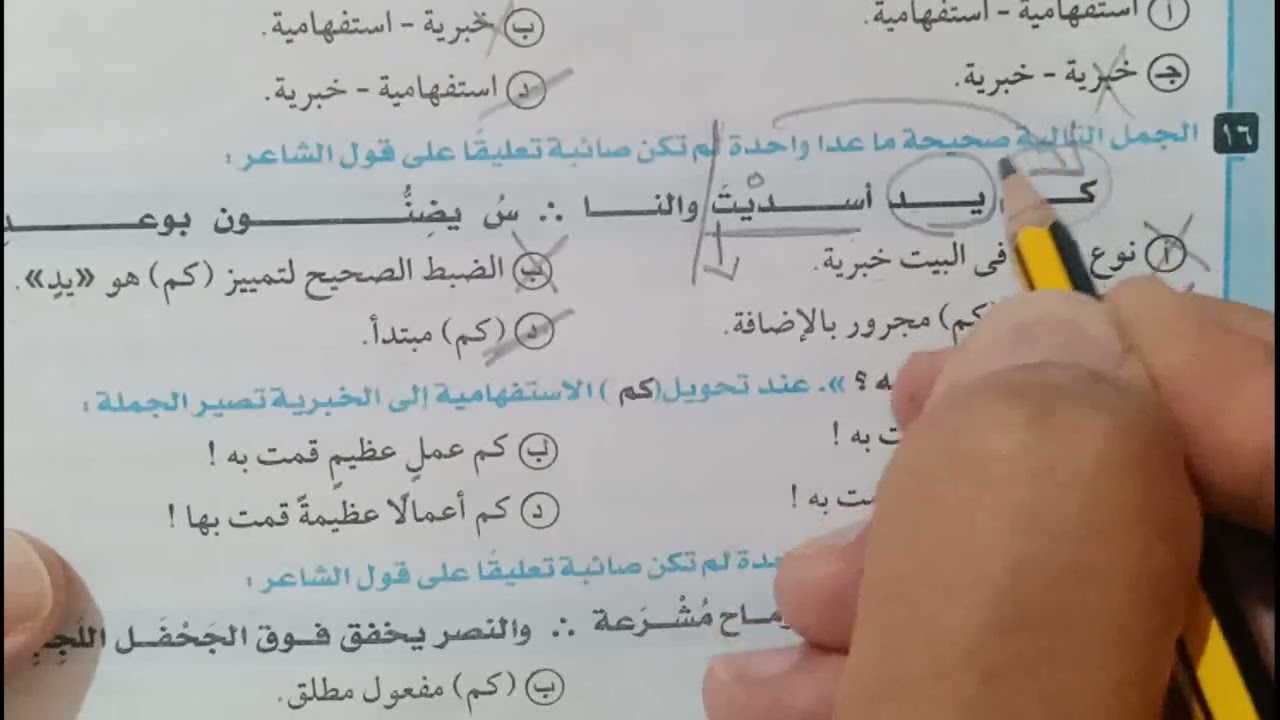 أ استفهامية - استفهامية.
ب خبرية - استفهامية.
جـ خبرية - خبرية.
د استفهامية - خبرية.
١٦ الجمل التالية صحيحة ما عدا واحدة لم تكن صائبة تعليقًا على قول الشاعر :
كـــم يـــد أســـديتَ والنـــا ∴ سُ يضِنُّـــون بوعـــد
أ نوع فى البيت خبرية.
ب الضبط الصحيح لتمييز (كم) هو «يدٍ».
(كم) مجرور بالإضافة.
د (كم) مبتدأ.
؟ ». عند تحويل (كم) الاستفهامية إلى الخبرية تصير الجملة :
به !
ب كم عملٍ عظيمٍ قمت به !
به !
د كم أعمالًا عظيمةً قمت بها !
لم تكن صائبة تعليقًا على قول الشاعر :
مُشْرَعة ∴ والنصر يخفق فوق الجَحْفَل اللَجِبِ
ب (كم) مفعول مطلق.